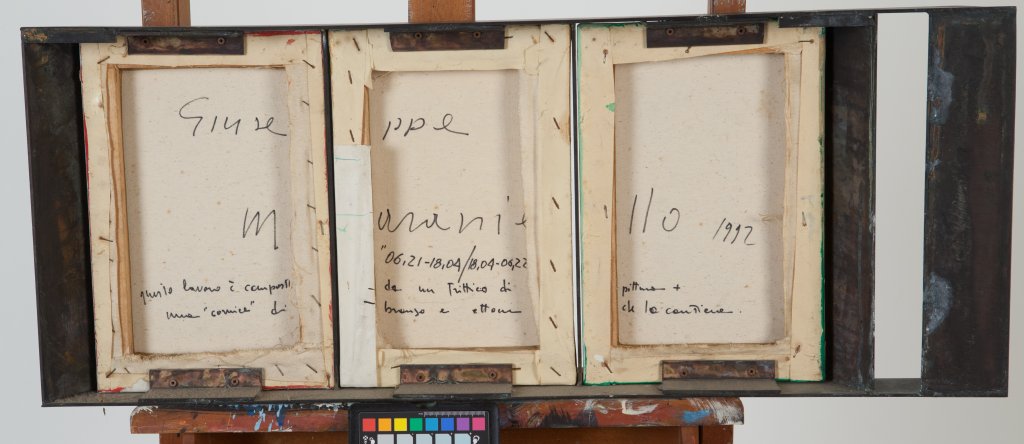 Giuse ppe
Maranie llo 1992
"06,21-18,04/18,04-06,22
questo lavoro è composto da un trittico di pittura +
una "cornice" di bronzo e ottone ch lo contiene.